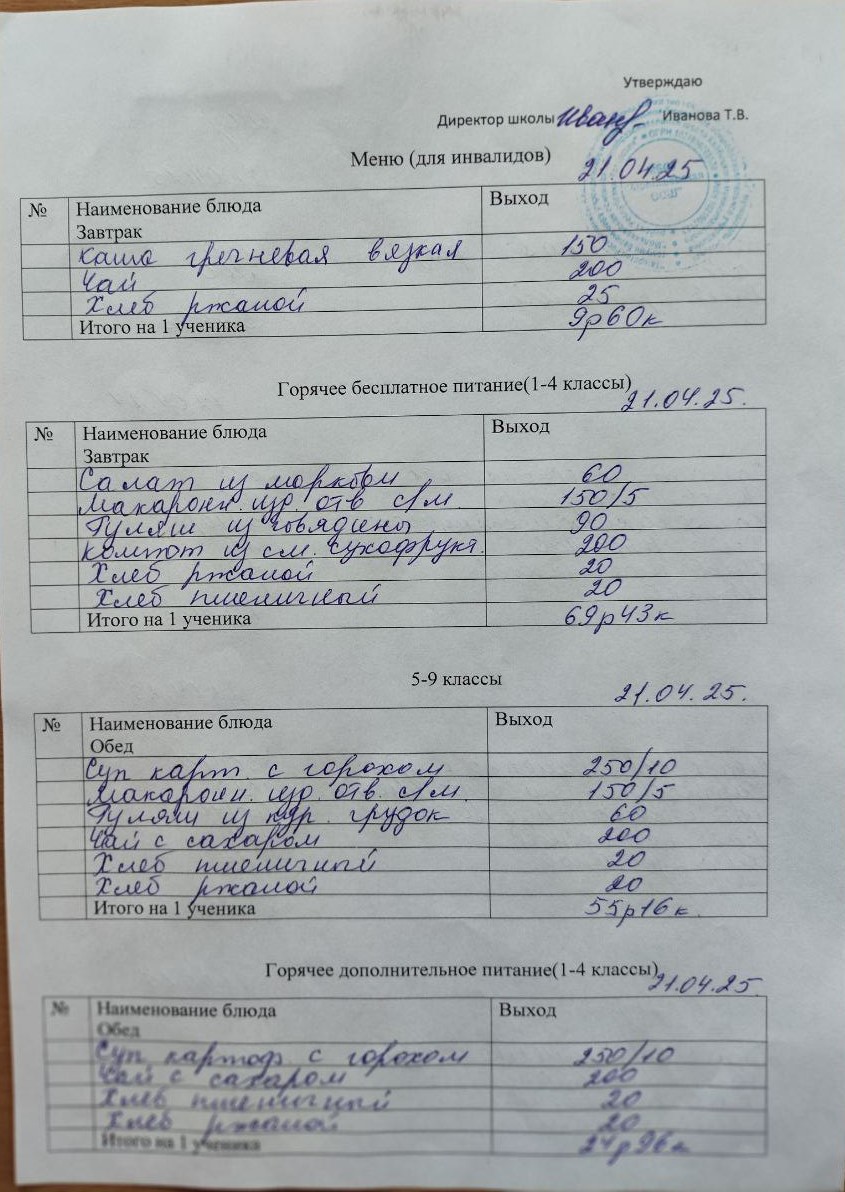 Утверждаю
Директор школы Иванова Т.В.
Меню (для инвалидов)
21.04.25
№ Наименование блюда Выход
Завтрак
Каша гречневая вязкая 150
Чай 200
Хлеб ржаной 25
Итого на 1 ученика 9р60к
Горячее бесплатное питание(1-4 классы)
21.04.25.
№ Наименование блюда Выход
Завтрак
Салат из моркови 60
Макарон. изд. отв с/м. 150/5
Гуляш из говядины 90
Компот из см. сухофрукт. 200
Хлеб ржаной 20
Хлеб пшеничный 20
Итого на 1 ученика 69р43к
5-9 классы
21.04.25.
№ Наименование блюда Выход
Обед
Суп карт. с горохом 250/10
Макарон. изд. отв. с/м. 150/5
Гуляш из кур. грудок 60
Чай с сахаром 200
Хлеб пшеничный 20
Хлеб ржаной 20
Итого на 1 ученика 55р16к.
Горячее дополнительное питание(1-4 классы)
21.04.25.
№ Наименование блюда Выход
Обед
Суп картоф. с горохом 250/10
Чай с сахаром 200
Хлеб пшеничный 20
Хлеб ржаной 20
Итого на 1 ученика 24р96к